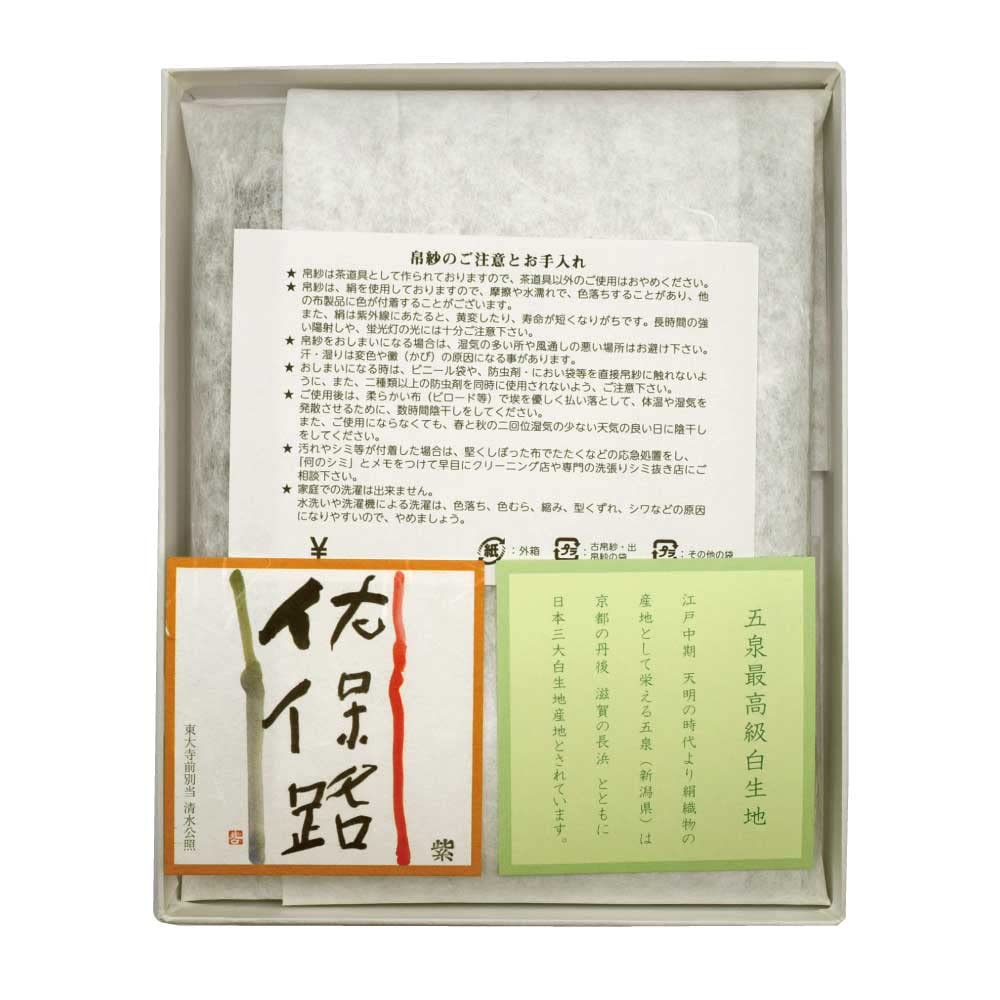 帛紗のご注意とお手入れ
★ 帛紗は茶道具として作られておりますので、茶道具以外のご使用はおやめください。
★ 帛紗は、絹を使用しておりますので、摩擦や水濡れで、色落ちすることがあり、他
の布製品に色が付着することがございます。
また、絹は紫外線にあたると、黄変したり、寿命が短くなりがちです。長時間の強
い陽射しや、蛍光灯の光には十分ご注意下さい。
★ 帛紗をおしまいになる場合は、湿気の多い所や風通しの悪い場所はお避け下さい。
汗・湿りは変色や黴（かび）の原因になる事があります。
★ おしまいになる時は、ビニール袋や、防虫剤・におい袋等を直接帛紗に触れないよ
うに、また、二種類以上の防虫剤を同時に使用されないよう、ご注意下さい。
★ ご使用後は、柔らかい布（ビロード等）で埃を優しく払い落として、体温や湿気を
発散させるために、数時間陰干しをしてください。
また、ご使用にならなくても、春と秋の二回位湿気の少ない天気の良い日に陰干し
をしてください。
★ 汚れやシミ等が付着した場合は、堅くしぼった布でたたくなどの応急処置をし、
「何のシミ」とメモをつけて早目にクリーニング店や専門の洗張りシミ抜き店にご
相談下さい。
★ 家庭での洗濯は出来ません。
水洗いや洗濯機による洗濯は、色落ち、色むら、縮み、型くずれ、シワなどの原因
になりやすいので、やめましょう。
¥
紙：外箱
プラ：古帛紗・出
帛紗の袋
プラ：その他の袋
佐保路
紫
東大寺前別当 清水公照
五泉最高級白生地
江戸中期 天明の時代より絹織物の
産地として栄える五泉（新潟県）は
京都の丹後 滋賀の長浜 とともに
日本三大白生地産地とされています。